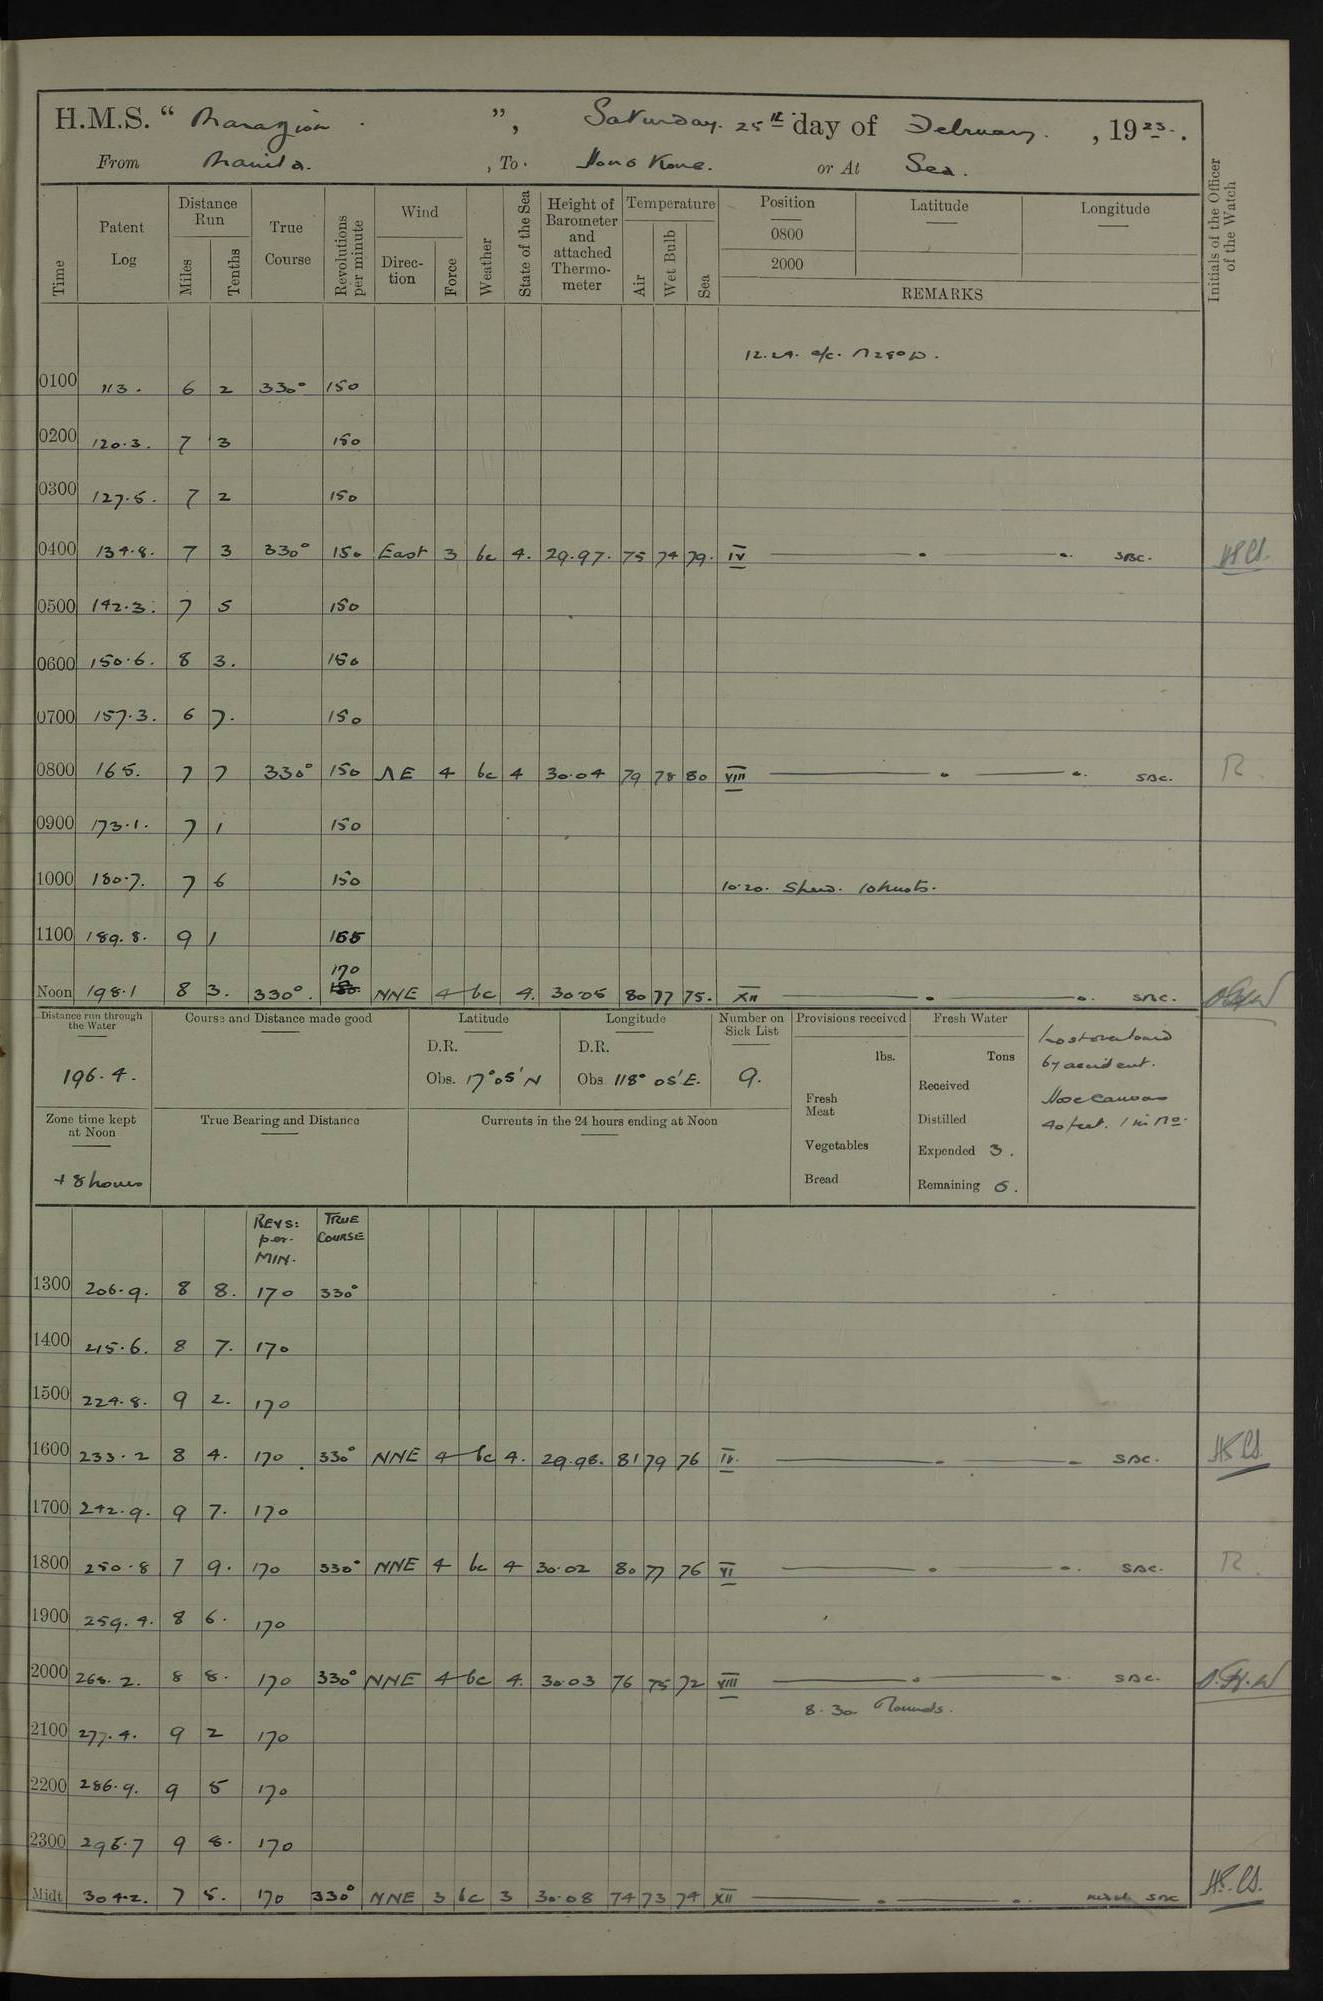 H.M.S. “ Marazion ”, Saturday. 25th day of February. , 1923.
From Manila. , To Hong Kong. or At Sea.
Time
Patent Log
Distance Run
Miles Tenths
True Course
Revolutions per minute
Wind
Direction Force
Weather
State of the Sea
Height of Barometer and attached Thermometer
Temperature
Air Wet Bulb Sea
Position Latitude Longitude
0800
2000
REMARKS
Initials of the Officer of the Watch
a/c.
0100 113. 6 2 330° 150
0200 120.3. 7 3 150
0300 127.5. 7 2 150
0400 134.8. 7 3 330° 150 East 3 bc 4. 29.97. 75 74 79. IV SBC.
0500 142.3. 7 5 150
0600 150.6. 8 3. 150
0700 157.3. 6 7. 150
0800 165. 7 7 330° 150 NE 4 bc 4 30.04 79 78 80 VIII SBC. R.
0900 173.1. 7 1 150
1000 180.7. 7 6 150 10.20. Speed. 10 knots.
1100 189.8. 9 1 165
170
Noon 198.1 8 3. 330°. 150. NNE 4 bc 4. 30.05 80 77 75. XII SBC.
Distance run through the Water
196.4.
Course and Distance made good
Latitude
D.R.
Obs. 17°05'N
Longitude
D.R.
Obs 118° 05'E.
Number on Sick List
9.
Provisions received
lbs.
Fresh Meat
Vegetables
Bread
Fresh Water
Tons
Received
Distilled
Expended 3.
Remaining 6.
Lost overboard
by accident.
Hose Canvas
40 feet. 1 in No.
Zone time kept at Noon
+ 8 hours
True Bearing and Distance
Currents in the 24 hours ending at Noon
REVS: per. MIN.
TRUE COURSE
1300 206.9. 8 8. 170 330°
1400 215.6. 8 7. 170
1500 224.8. 9 2. 170
1600 233.2 8 4. 170 330° NNE 4 bc 4. 29.98. 81 79 76 IV. SBC.
1700 242.9. 9 7. 170
1800 250.8 7 9. 170 330° NNE 4 bc 4 30.02 80 77 76 VI SBC. R.
1900 259.4. 8 6. 170
2000 268.2. 8 8. 170 330° NNE 4 bc 4. 30.03 76 75 72 VIII SBC.
8.30 Rounds.
2100 277.4. 9 2 170
2200 286.9. 9 5 170
2300 296.7 9 8. 170
Midt 304.2. 7 5. 170 330° NNE 3 bc 3 30.08 74 73 74 XII SBC